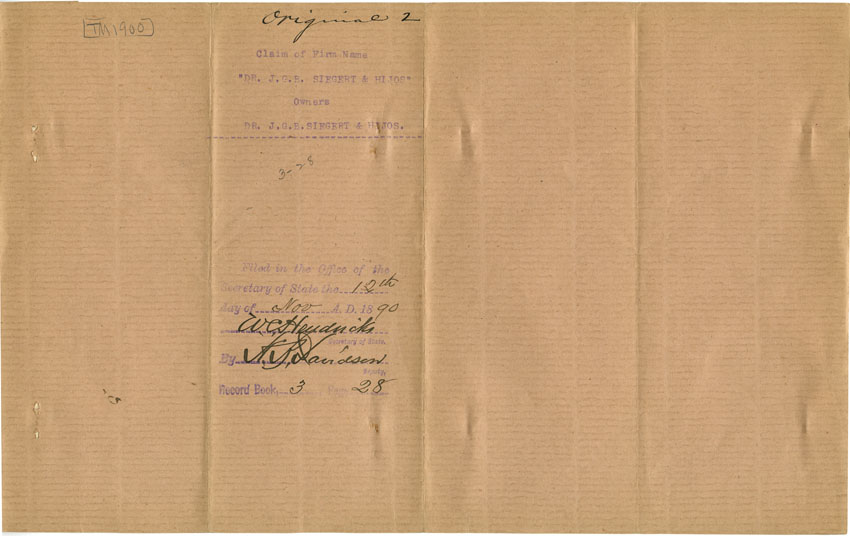 TM1900
Original 2
Claim of Firm Name
"DR. J.G.B. SIEGERT & HIJOS"
Owners
DR. J.G.B. SIEGERT & HIJOS.
3-28
Filed in the Office of the
Secretary of State the 12th
day of Nov A. D. 1890
W.C. Hendricks
Secretary of State.
By A. S. Davidson
Deputy,
Record Book, 3 Page 28